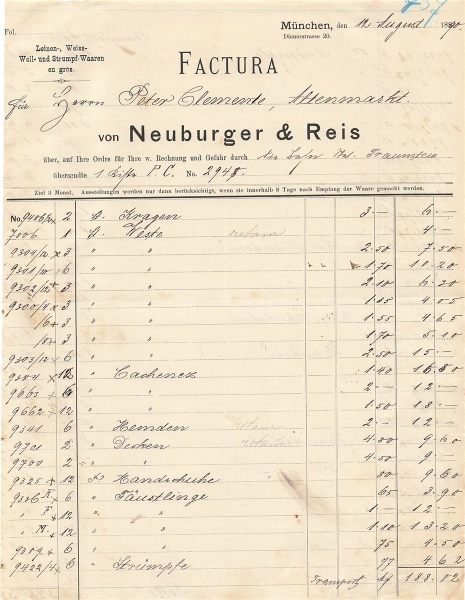 Fol.
München, den 12 August 1890.
Dienerstrasse 20.
Leinen-, Weiss-
Woll- und Strumpf-Waaren
en gros.
FACTURA
für Herrn Peter Clemente, Altenmarkt.
von Neuburger & Reis
über, auf Ihre Ordre für Ihre w. Rechnung und Gefahr durch die Traunstein
übersandte 1 Kiste P. C. No. 2948.
Ziel 3 Monat. Ausstellungen werden nur dann berücksichtigt, wenn sie innerhalb 8 Tage nach Empfang der Waare gemacht werden.
No. 2 Kragen 3 — 6 —
7806 1 Weste retour 4 —
9309/12 x 3 " " 2.50 7.50
6 " " 1.70 10.20
9302/12 3 " " 2.10 6.30
9300/4 x 3 " " 1.35 4.05
3 " " 1.55 4.65
3 " " 1.70 5.10
9303/12 6 " " 2.50 15.—
x 12 " Cachenez 1.40
9663 x 6 " " 2.— 12.—
9662 x 12 " " 1.50 18.—
6 " Hemden 2.— 12.—
9701 2 " Decken 9.60
9700 2 " " 4.50 9.—
9325 x 12 Handschuhe 80 9.60
9306 x 6 " Fäustlinge 65 3.90
" F + 12 " " 1.— 12.—
" M. + 12 " " 1.10 13.20
9309 + 6 " " 75 4.50
9422/4 x 6 " Strümpfe 77 4.62
Transport 188.02